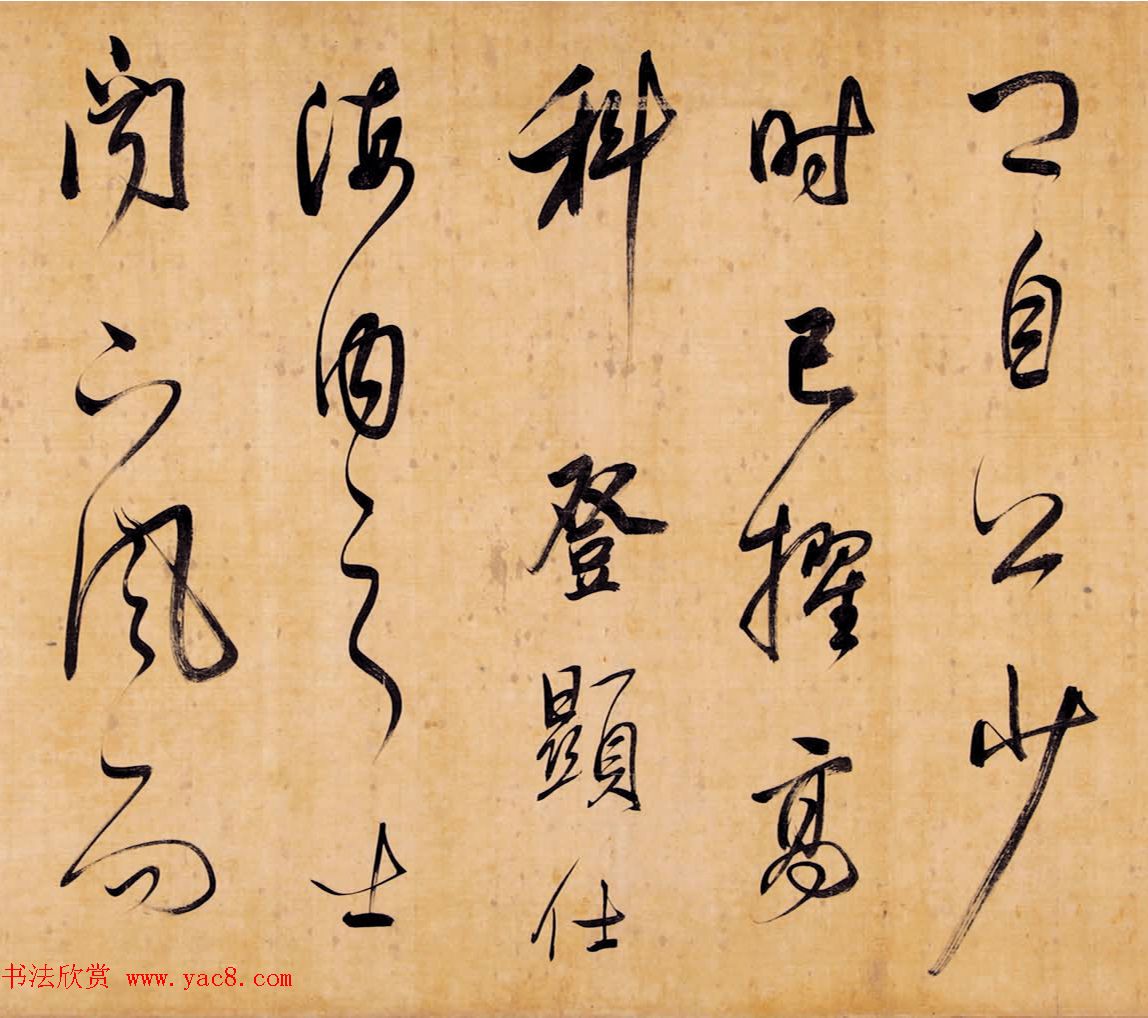 自公少
时已擢高
科登顯仕
海内之士
闻下風而
书法欣赏 www.yac8.com